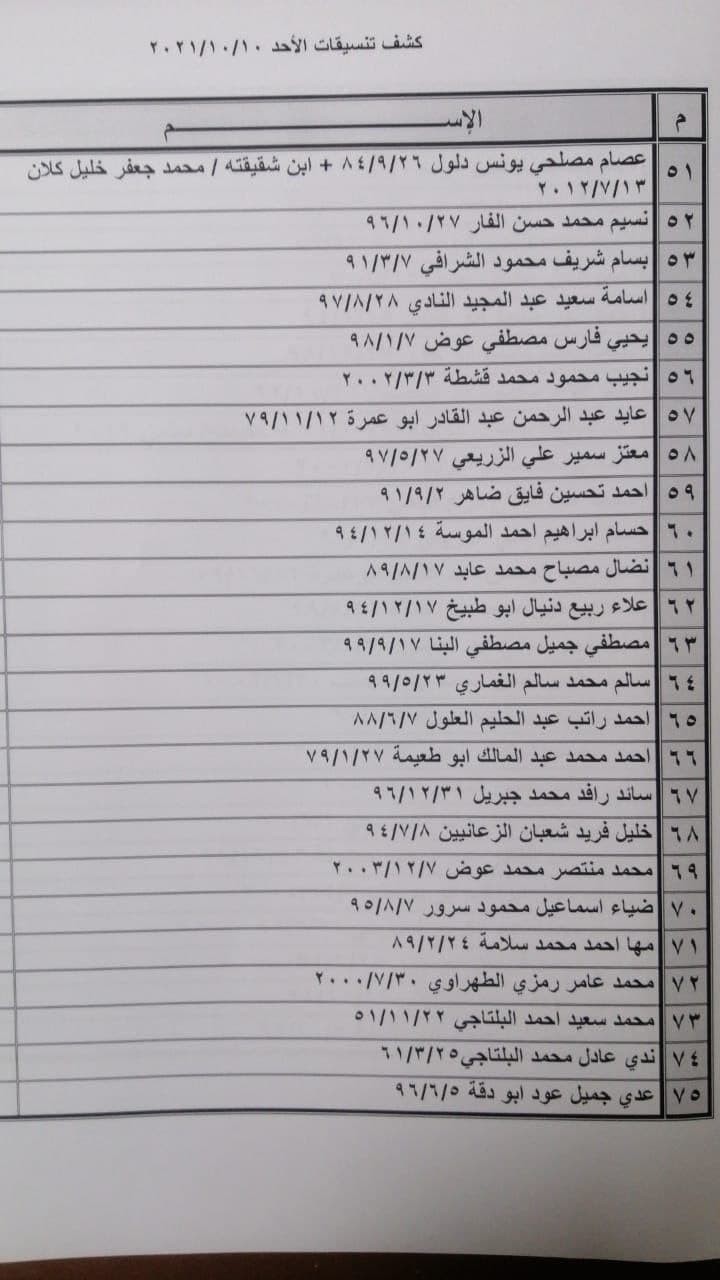 كشف تنسيقات الأحد ٢٠٢١/١٠/١٠
م الإســـــــــــــــــــــــم
٥١ عصام مصلحي يونس دلول ٨٤/٩/٢٦ + ابن شقيقته / محمد جعفر خليل كلان
٢٠١٢/٧/١٣
٥٢ نسيم محمد حسن الفار ٩٦/١٠/٢٧
٥٣ بسام شريف محمود الشرافي ٩١/٣/٧
٥٤ اسامة سعيد عبد المجيد النادي ٩٧/٨/٢٨
٥٥ يحيي فارس مصطفي عوض ٩٨/١/٧
٥٦ نجيب محمود محمد قشطة ٢٠٠٢/٣/٣
٥٧ عايد عبد الرحمن عبد القادر ابو عمرة ٧٩/١١/١٢
٥٨ معتز سمير علي الزريعي ٩٧/٥/٢٧
٥٩ احمد تحسين فايق ضاهر ٩١/٩/٢
٦٠ حسام ابراهيم احمد الموسة ٩٤/١٢/١٤
٦١ نضال مصباح محمد عابد ٨٩/٨/١٧
٦٢ علاء ربيع دنيال ابو طبيخ ٩٤/١٢/١٧
٦٣ مصطفي جميل مصطفي البنا ٩٩/٩/١٧
٦٤ سالم محمد سالم الغماري ٩٩/٥/٢٣
٦٥ احمد راتب عبد الحليم العلول ٨٨/٦/٧
٦٦ احمد محمد عبد المالك ابو طعيمة ٧٩/١/٢٧
٦٧ سائد رافد محمد جبريل ٩٦/١٢/٣١
٦٨ خليل فريد شعبان الزعانيين ٩٤/٧/٨
٦٩ محمد منتصر محمد عوض ٢٠٠٣/١٢/٧
٧٠ ضياء اسماعيل محمود سرور ٩٥/٨/٧
٧١ مها احمد محمد سلامة ٨٩/٢/٢٤
٧٢ محمد عامر رمزي الطهراوي ٢٠٠٠/٧/٣٠
٧٣ محمد سعيد احمد البلتاجي ٥١/١١/٢٢
٧٤ ندي عادل محمد البلتاجي٦١/٣/٢٥
٧٥ عدي جميل عود ابو دقة ٩٦/٦/٥